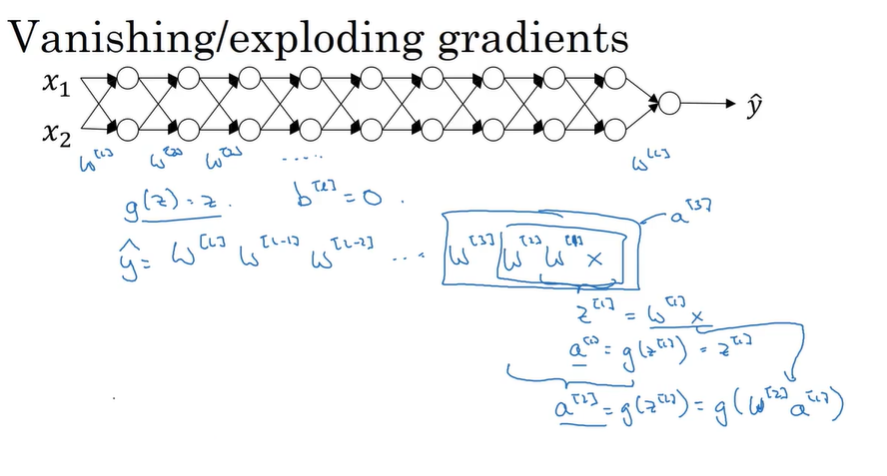 Vanishing/exploding gradients
x₁
x₂
ŷ
w^[1] w^[2] w^[3] ..... w^[L]
g(z) = z. b^[l] = 0.
ŷ = w^[L] w^[L-1] w^[L-2] ... w^[3] w^[2] w^[1] x
a^[3]
z^[1] = w^[1] x
a^[1] = g(z^[1]) = z^[1]
a^[2] = g(z^[2]) = g(w^[2] a^[1])